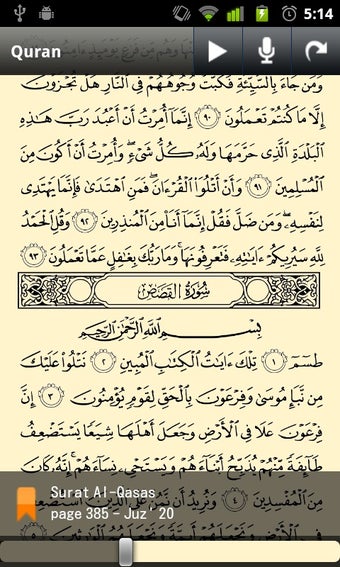 5:14
Quran
وَمَن جَآءَ بِٱلسَّيِّئَةِ فَكُبَّتْ وُجُوهُهُمْ فِى ٱلنَّارِ هَلْ تُجْزَوْنَ
إِلَّا مَا كُنتُمْ تَعْمَلُونَ ٩٠ إِنَّمَآ أُمِرْتُ أَنْ أَعْبُدَ رَبَّ هَٰذِهِ
ٱلْبَلْدَةِ ٱلَّذِى حَرَّمَهَا وَلَهُۥ كُلُّ شَىْءٍ ۖ وَأُمِرْتُ أَنْ أَكُونَ مِنَ
ٱلْمُسْلِمِينَ ٩١ وَأَنْ أَتْلُوَا۟ ٱلْقُرْءَانَ ۖ فَمَنِ ٱهْتَدَىٰ فَإِنَّمَا يَهْتَدِى
لِنَفْسِهِۦ ۖ وَمَن ضَلَّ فَقُلْ إِنَّمَآ أَنَا۠ مِنَ ٱلْمُنذِرِينَ ٩٢ وَقُلِ ٱلْحَمْدُ
لِلَّهِ سَيُرِيكُمْ ءَايَٰتِهِۦ فَتَعْرِفُونَهَا ۚ وَمَا رَبُّكَ بِغَٰفِلٍ عَمَّا تَعْمَلُونَ ٩٣
سُورَةُ القَصَصِ
بِسْمِ ٱللَّهِ ٱلرَّحْمَٰنِ ٱلرَّحِيمِ
طسٓمٓ ١ تِلْكَ ءَايَٰتُ ٱلْكِتَٰبِ ٱلْمُبِينِ ٢ نَتْلُوا۟ عَلَيْكَ
مِن نَّبَإِ مُوسَىٰ وَفِرْعَوْنَ بِٱلْحَقِّ لِقَوْمٍ يُؤْمِنُونَ ٣ إِنَّ
فِرْعَوْنَ عَلَا فِى ٱلْأَرْضِ وَجَعَلَ أَهْلَهَا شِيَعًا يَسْتَضْعِفُ
طَآئِفَةً مِّنْهُمْ يُذَبِّحُ أَبْنَآءَهُمْ وَيَسْتَحْىِۦ نِسَآءَهُمْ ۚ إِنَّهُۥ كَانَ
مِنَ ٱلْمُفْسِدِينَ ٤ وَنُرِيدُ أَن نَّمُنَّ عَلَى ٱلَّذِينَ ٱسْتُضْعِفُوا۟
Surat Al-Qasas
page 385 - Juz' 20